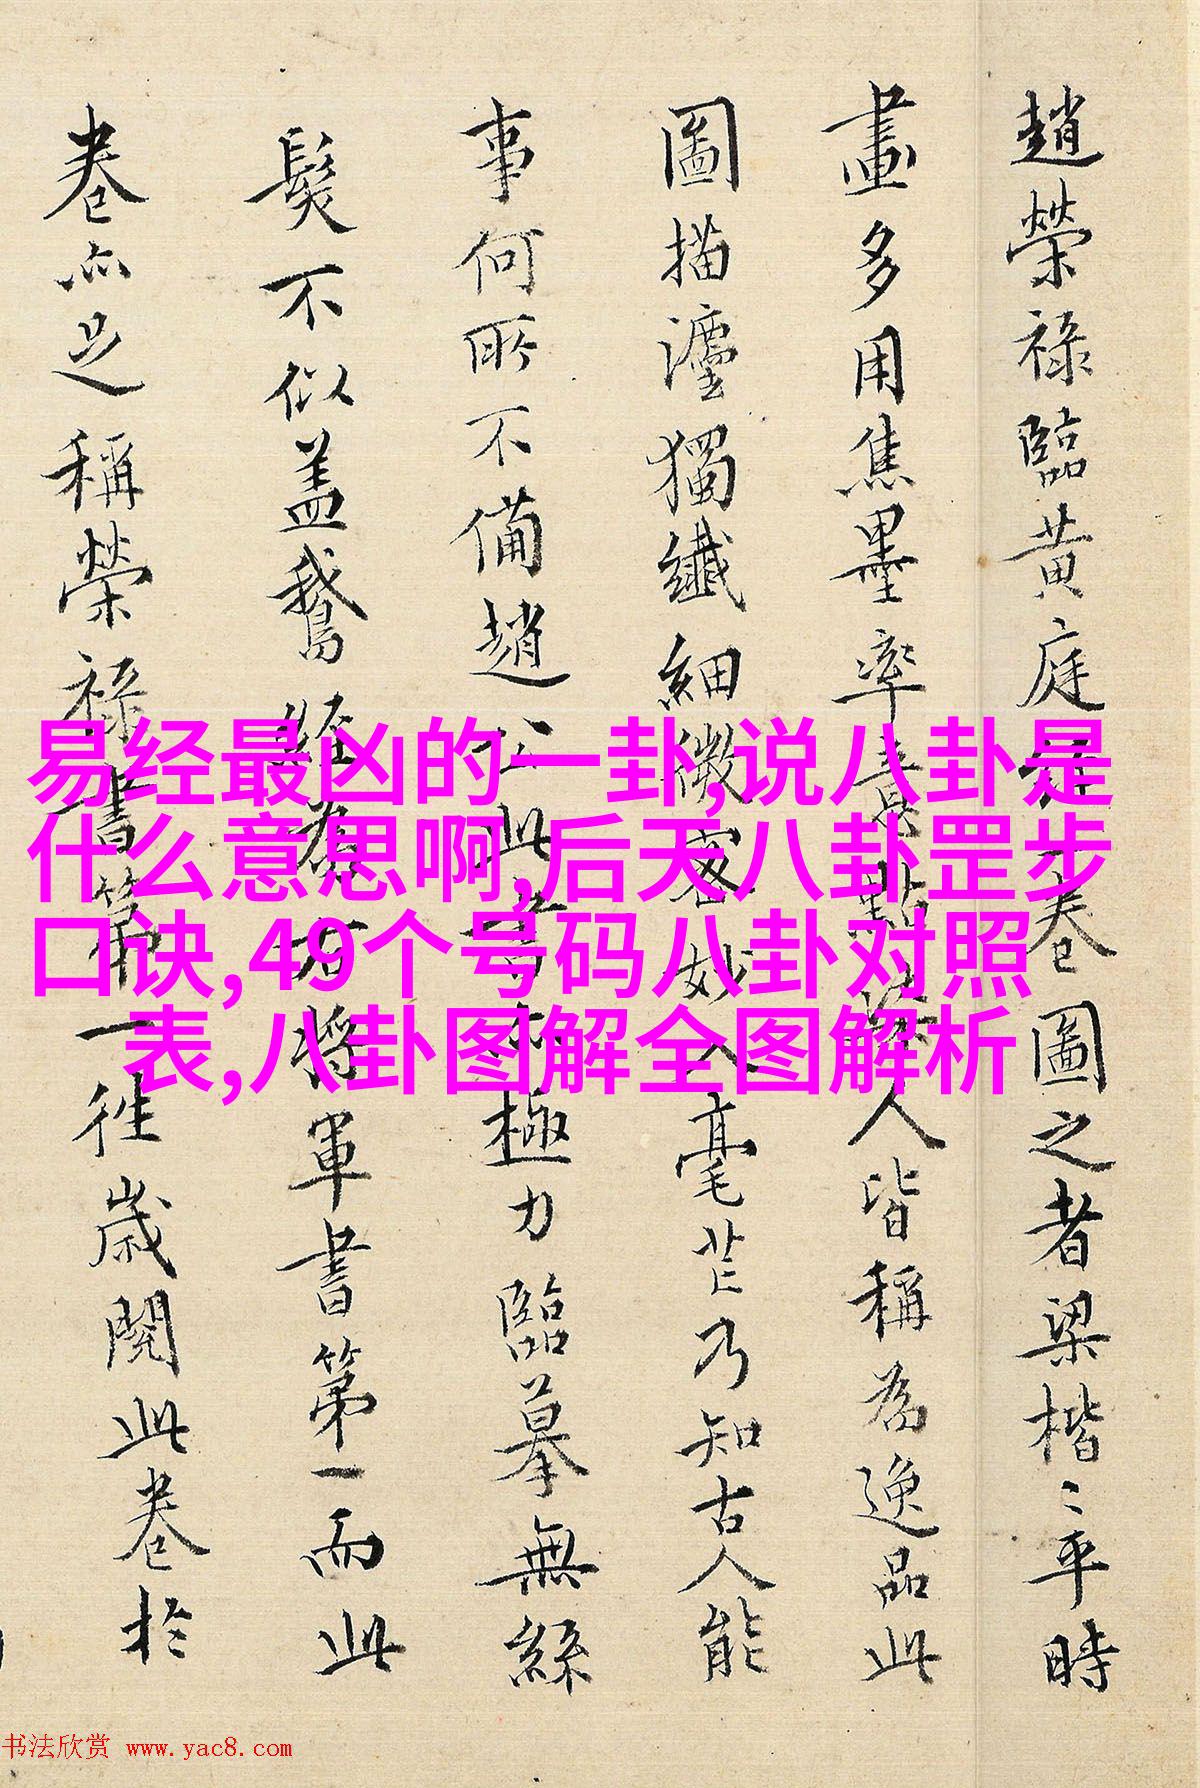 趙榮祿臨黃庭 卷圖之者梁楷〻平時
畫多用焦墨率意點 人皆稱為逸品此
圖描瀍獨纖細微密妙入毫芒乃知古人能
事何所不備趙公此書 極力臨摹無絲
髮不似盖鵝經為右將軍書第一而此
卷亦足稱榮祿書第一往歲閱此卷於
易经最凶的一卦,说八卦是
什么意思啊,后天八卦罡步
口诀,49个号码八卦对照
表,八卦图解全图解析
书法欣赏 www.yac8.com